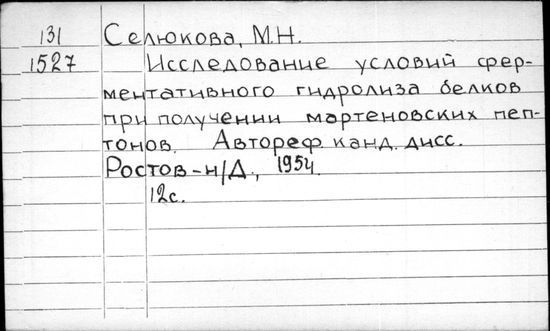 131 Селюкова, М.Н.
1527 Исследование условий фер-
ментативного гидролиза белков
при получении мартеновских пеп-
тонов. Автореф. канд. дисс.
Ростов-н/Д., 1954.
12с.